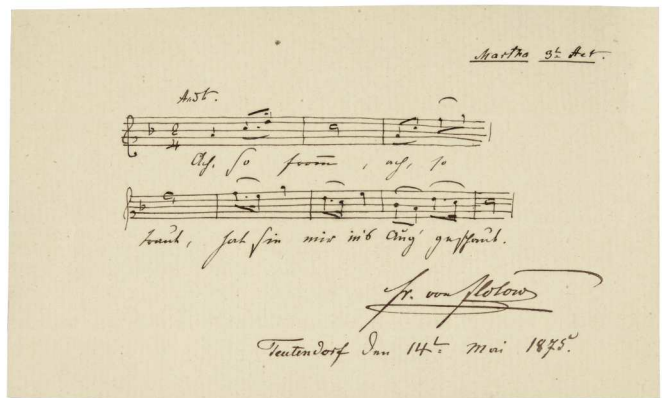 Martha 3t. Act.
Andte.
Ach, so fromm, ach, so
traut, hat sie mir in's Aug' geschaut.
Fr. von Flotow
Teutendorf den 14t. Mai 1875.